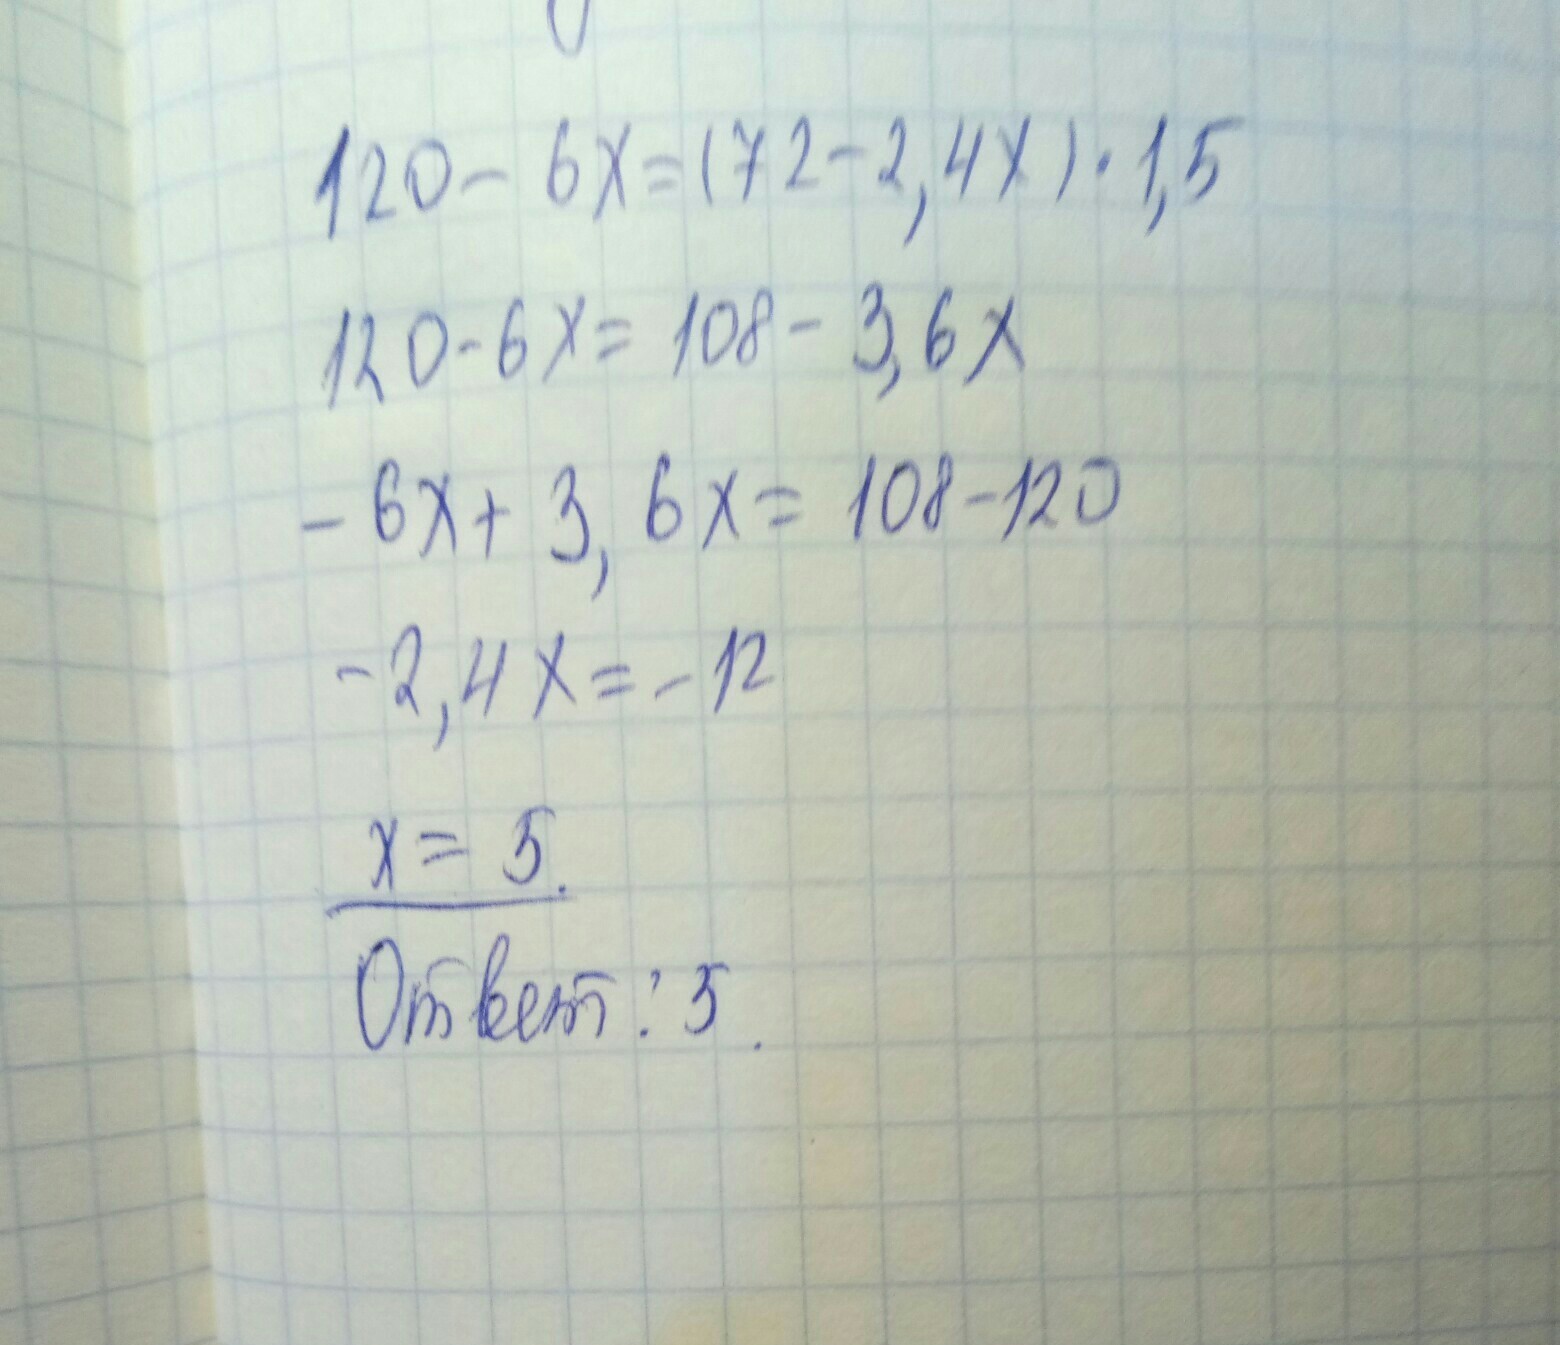 120 - 6x = (72 - 2,4x) · 1,5
120 - 6x = 108 - 3,6x
- 6x + 3,6x = 108 - 120
- 2,4x = - 12
x = 5.
Ответ: 5.